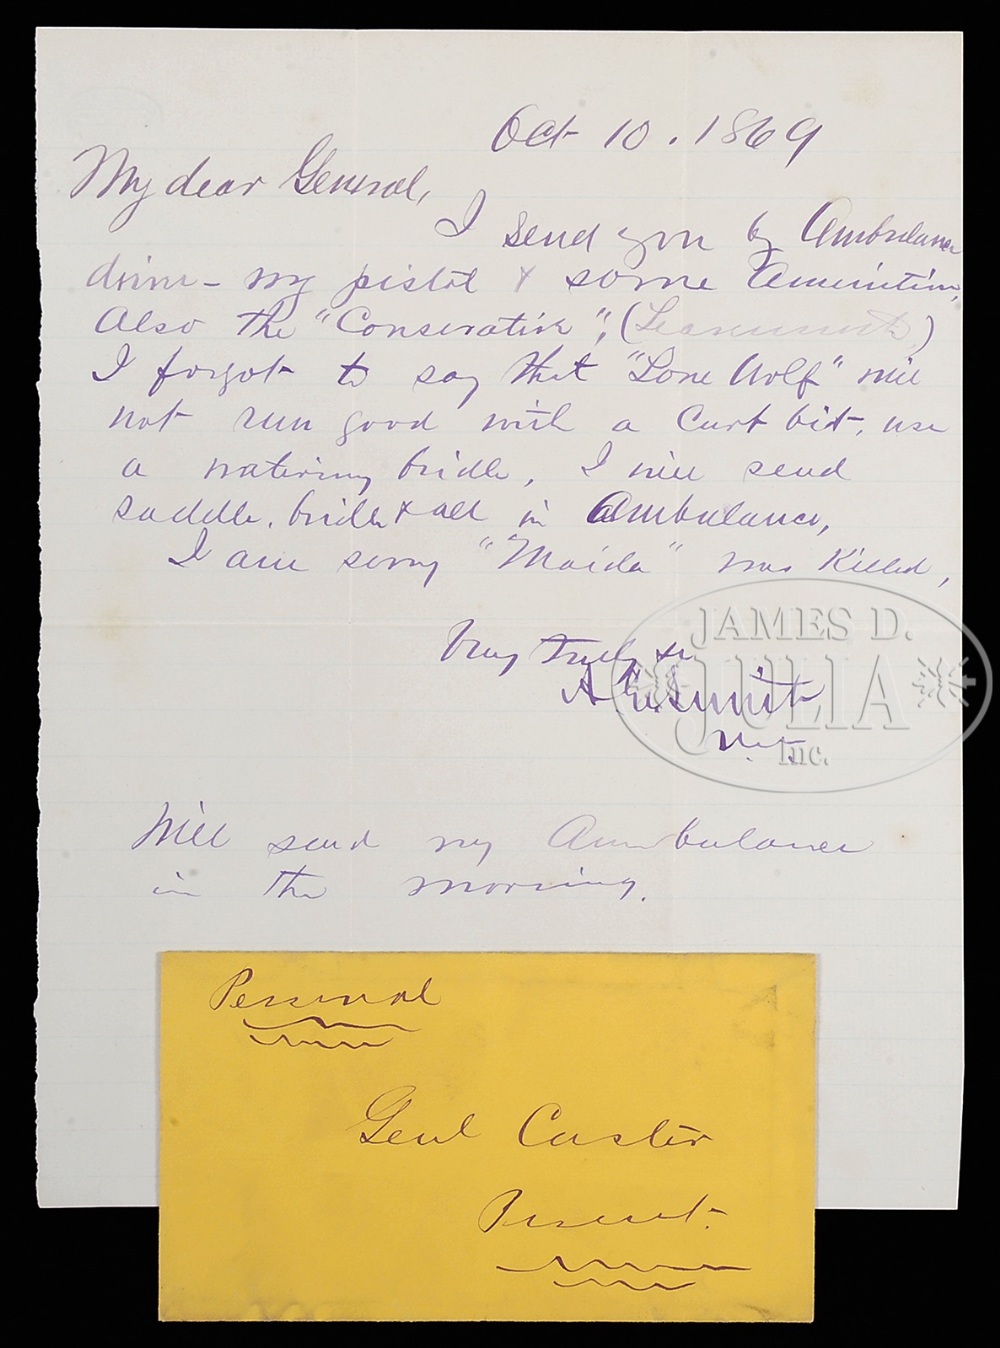 Oct 10. 1869
My dear General,
I send you by Ambulance
driver - my pistol & some Amunition,
Also the "Conservative", (Leavenworth)
I forgot to say that "Lone Wolf" will
not run good with a Curb bit, use
a watering bridle, I will send
saddle, bridle & all in Ambulance,
I am sorry "Maida" was Killed,
Very Truly yr
A E Smith
Will send my Ambulance
in the morning.
Personal
Genl Custer
Present.
JAMES D.
JULIA
Inc.